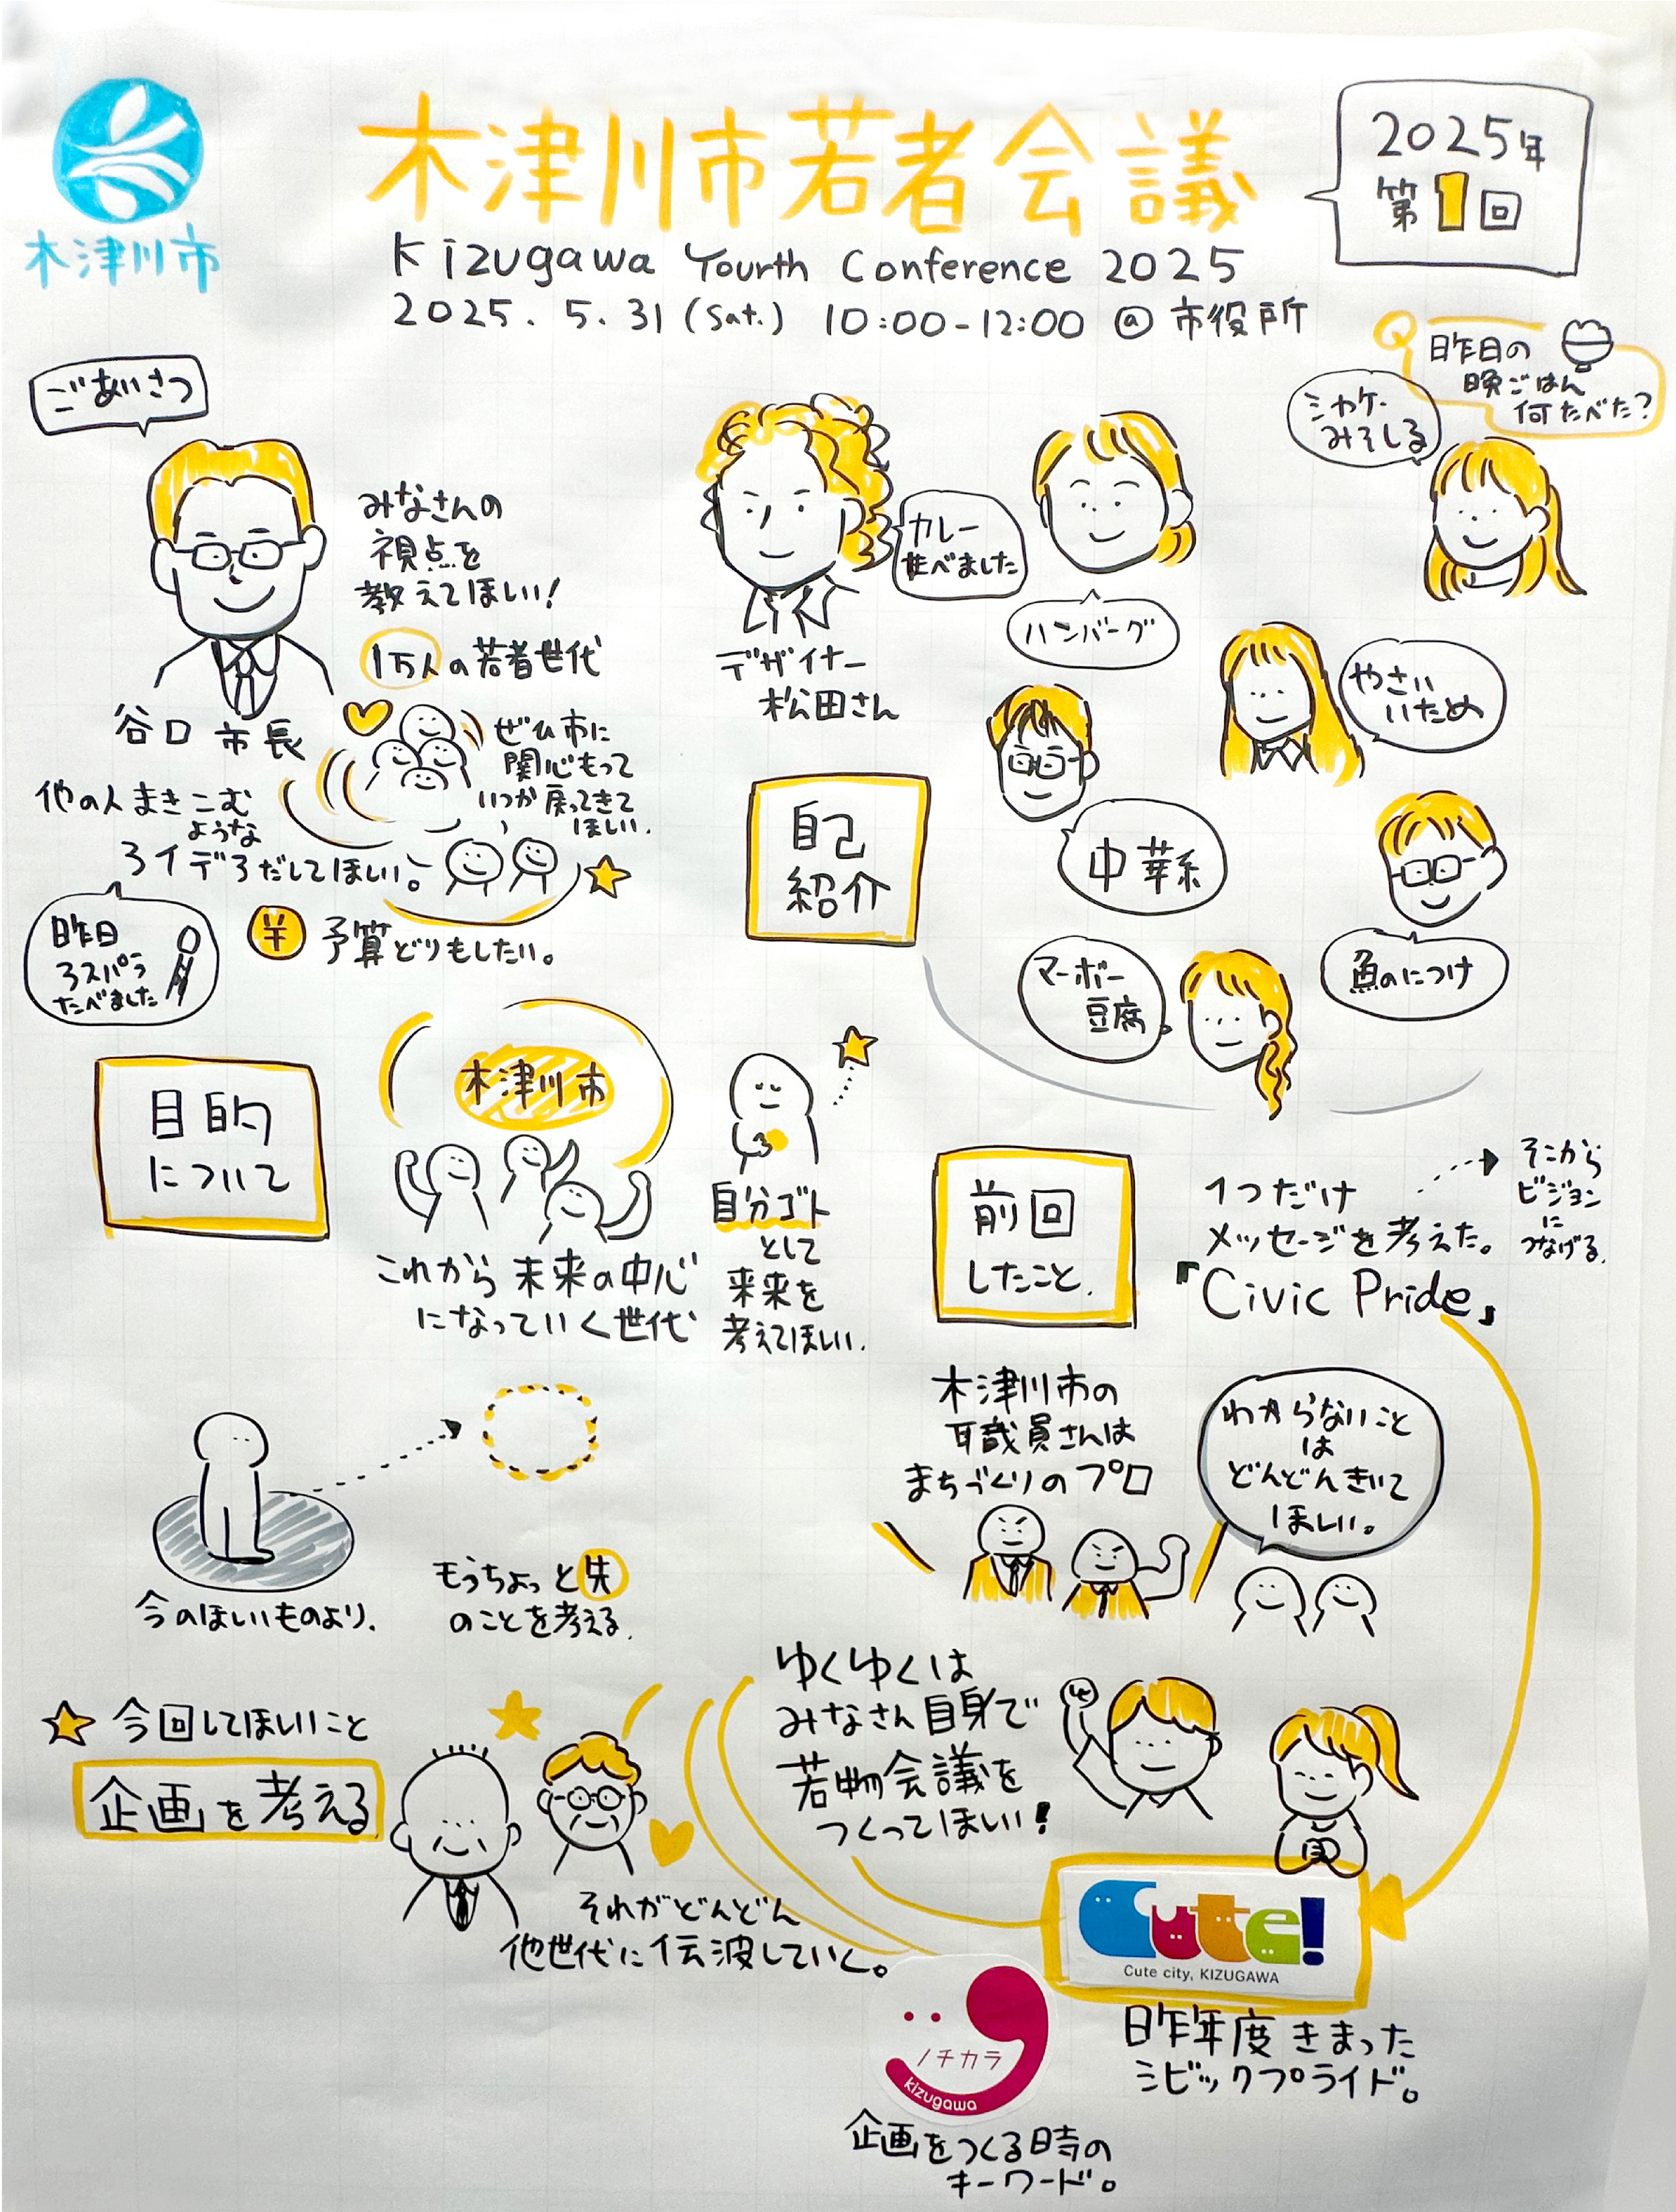 木津川市
木津川市若者会議
Kizugawa Yourth Conference 2025
2025. 5. 31 (Sat.) 10:00-12:00 @ 市役所
2025年
第1回
ごあいさつ
みなさんの
視点を
教えてほしい!
谷口 市長
1万人の若者世代
ぜひ市に
関心もって
いつか戻ってきて
ほしい.
他の人まきこむ
ような
アイデアだしてほしい。
昨日
アスパラ
たべました
¥ 予算どりもしたい。
Q 昨日の
晩ごはん
何たべた?
シャケ・
みそしる
カレー
食べました
デザイナー
松田さん
ハンバーグ
やさい
いため
自己
紹介
中華系
魚のにつけ
マーボー
豆腐。
目的
について
木津川市
これから 未来の中心
になっていく世代
自分ゴト
として
未来を
考えてほしい.
今のほしいものより.
もうちょっと先
のことを考える.
前回
したこと.
1つだけ
メッセージを考えた。
『Civic Pride』
そこから
ビジョン
に
つなげる.
木津川市の
職員さんは
まちづくりのプロ
わからないこと
は
どんどんきいて
ほしい。
今回してほしいこと
企画を考える
ゆくゆくは
みなさん自身で
若者会議を
つくってほしい!
それがどんどん
他世代に伝波していく。
Cute!
Cute city, KIZUGAWA
昨年度きまった
シビックプライド。
ノチカラ
kizugawa
企画をつくる時の
キーワード。